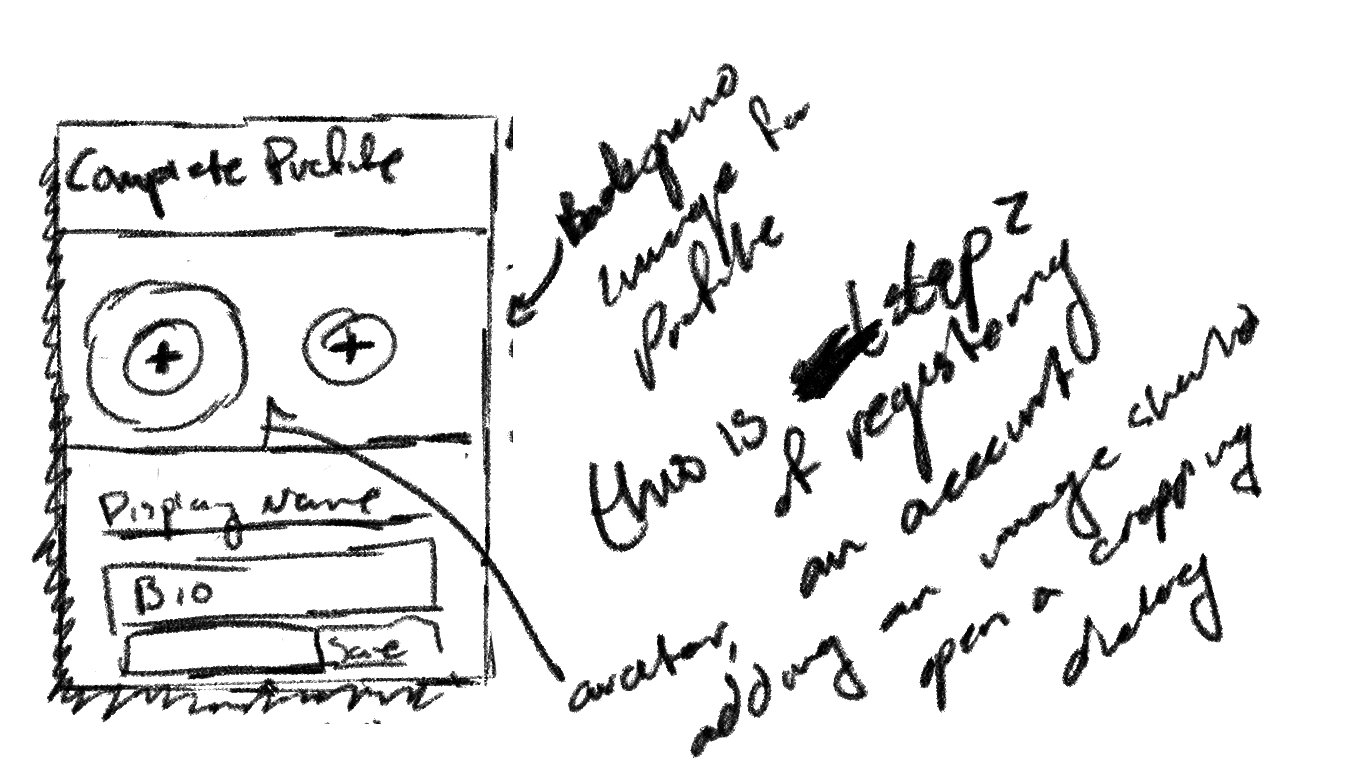 Complete Profile
+
+
Display Name
Bio
Save
Background
image for
Profile
this is step 2
of registering
an account
avatar,
adding an image should
open a cropping
dialog